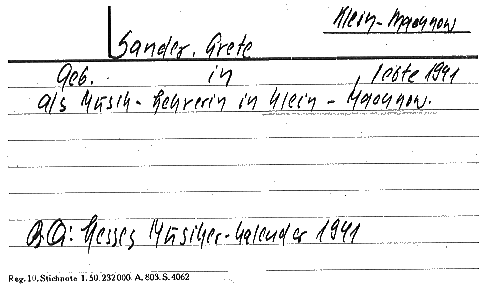 Klein-Machnow
Sander, Grete
Geb. in lebte 1941
als Musik-Lehrerin in Klein-Machnow.
BQ: Hesses Musiker-Kalender 1941
Reg. 10. Stichnote 1. 50. 232000. A. 803. S. 4062